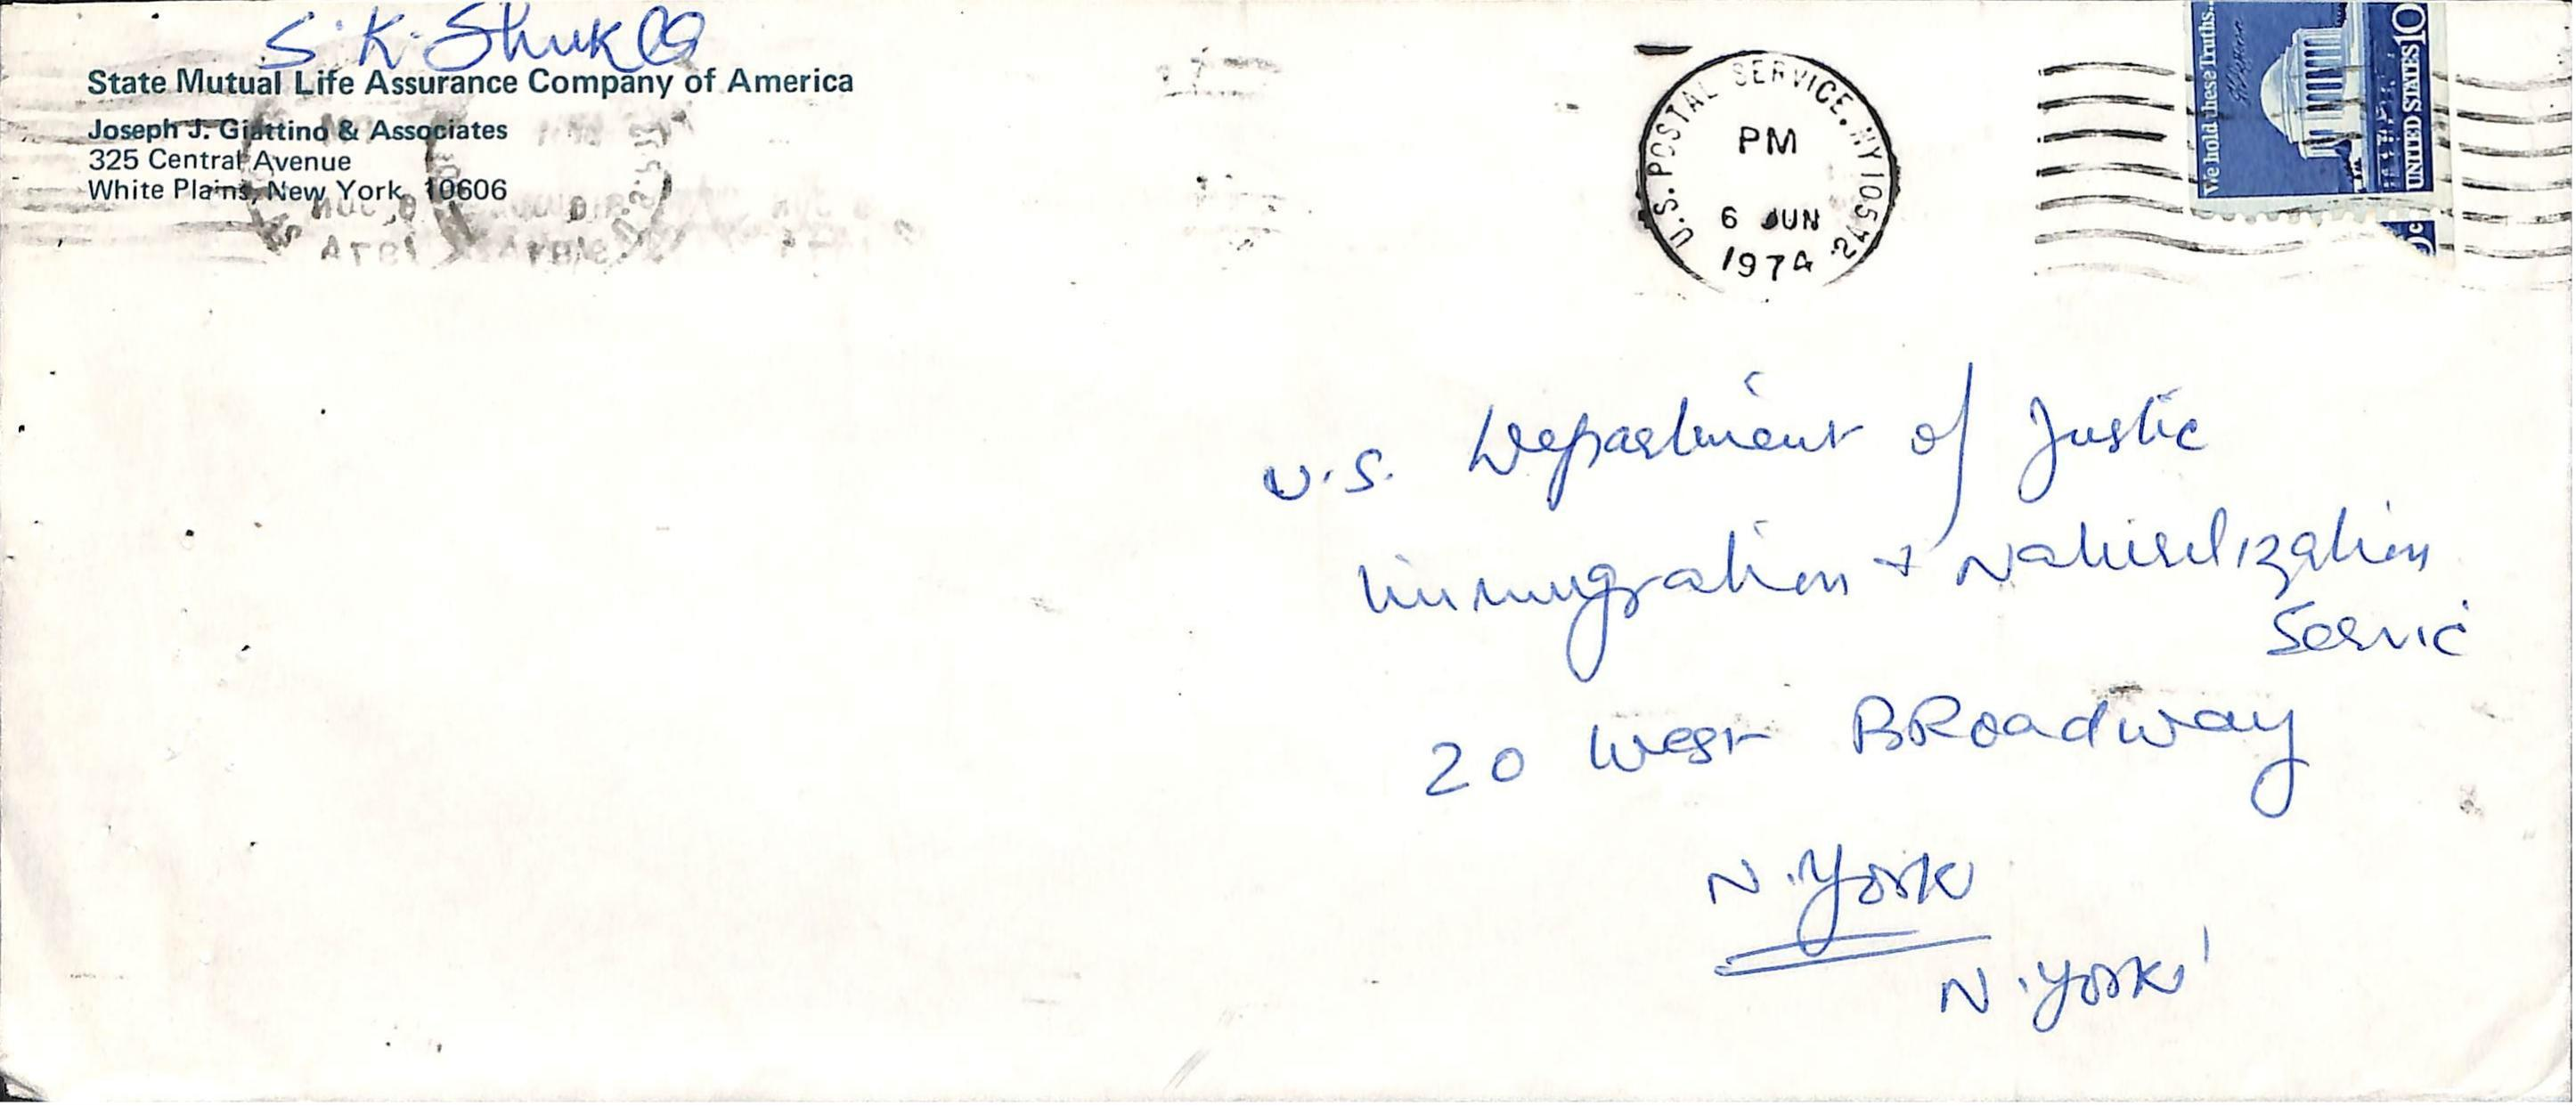 S. K. Shukla
State Mutual Life Assurance Company of America
Joseph J. Giattino & Associates
325 Central Avenue
White Plains, New York 10606
U.S. POSTAL SERVICE. NY 105
PM
6 JUN
1974
We hold these Truths..
UNITED STATES 10
U.S. Department of Justic
Immigration & Naturalization
Servic
20 West BRoadway
N. York
N. York